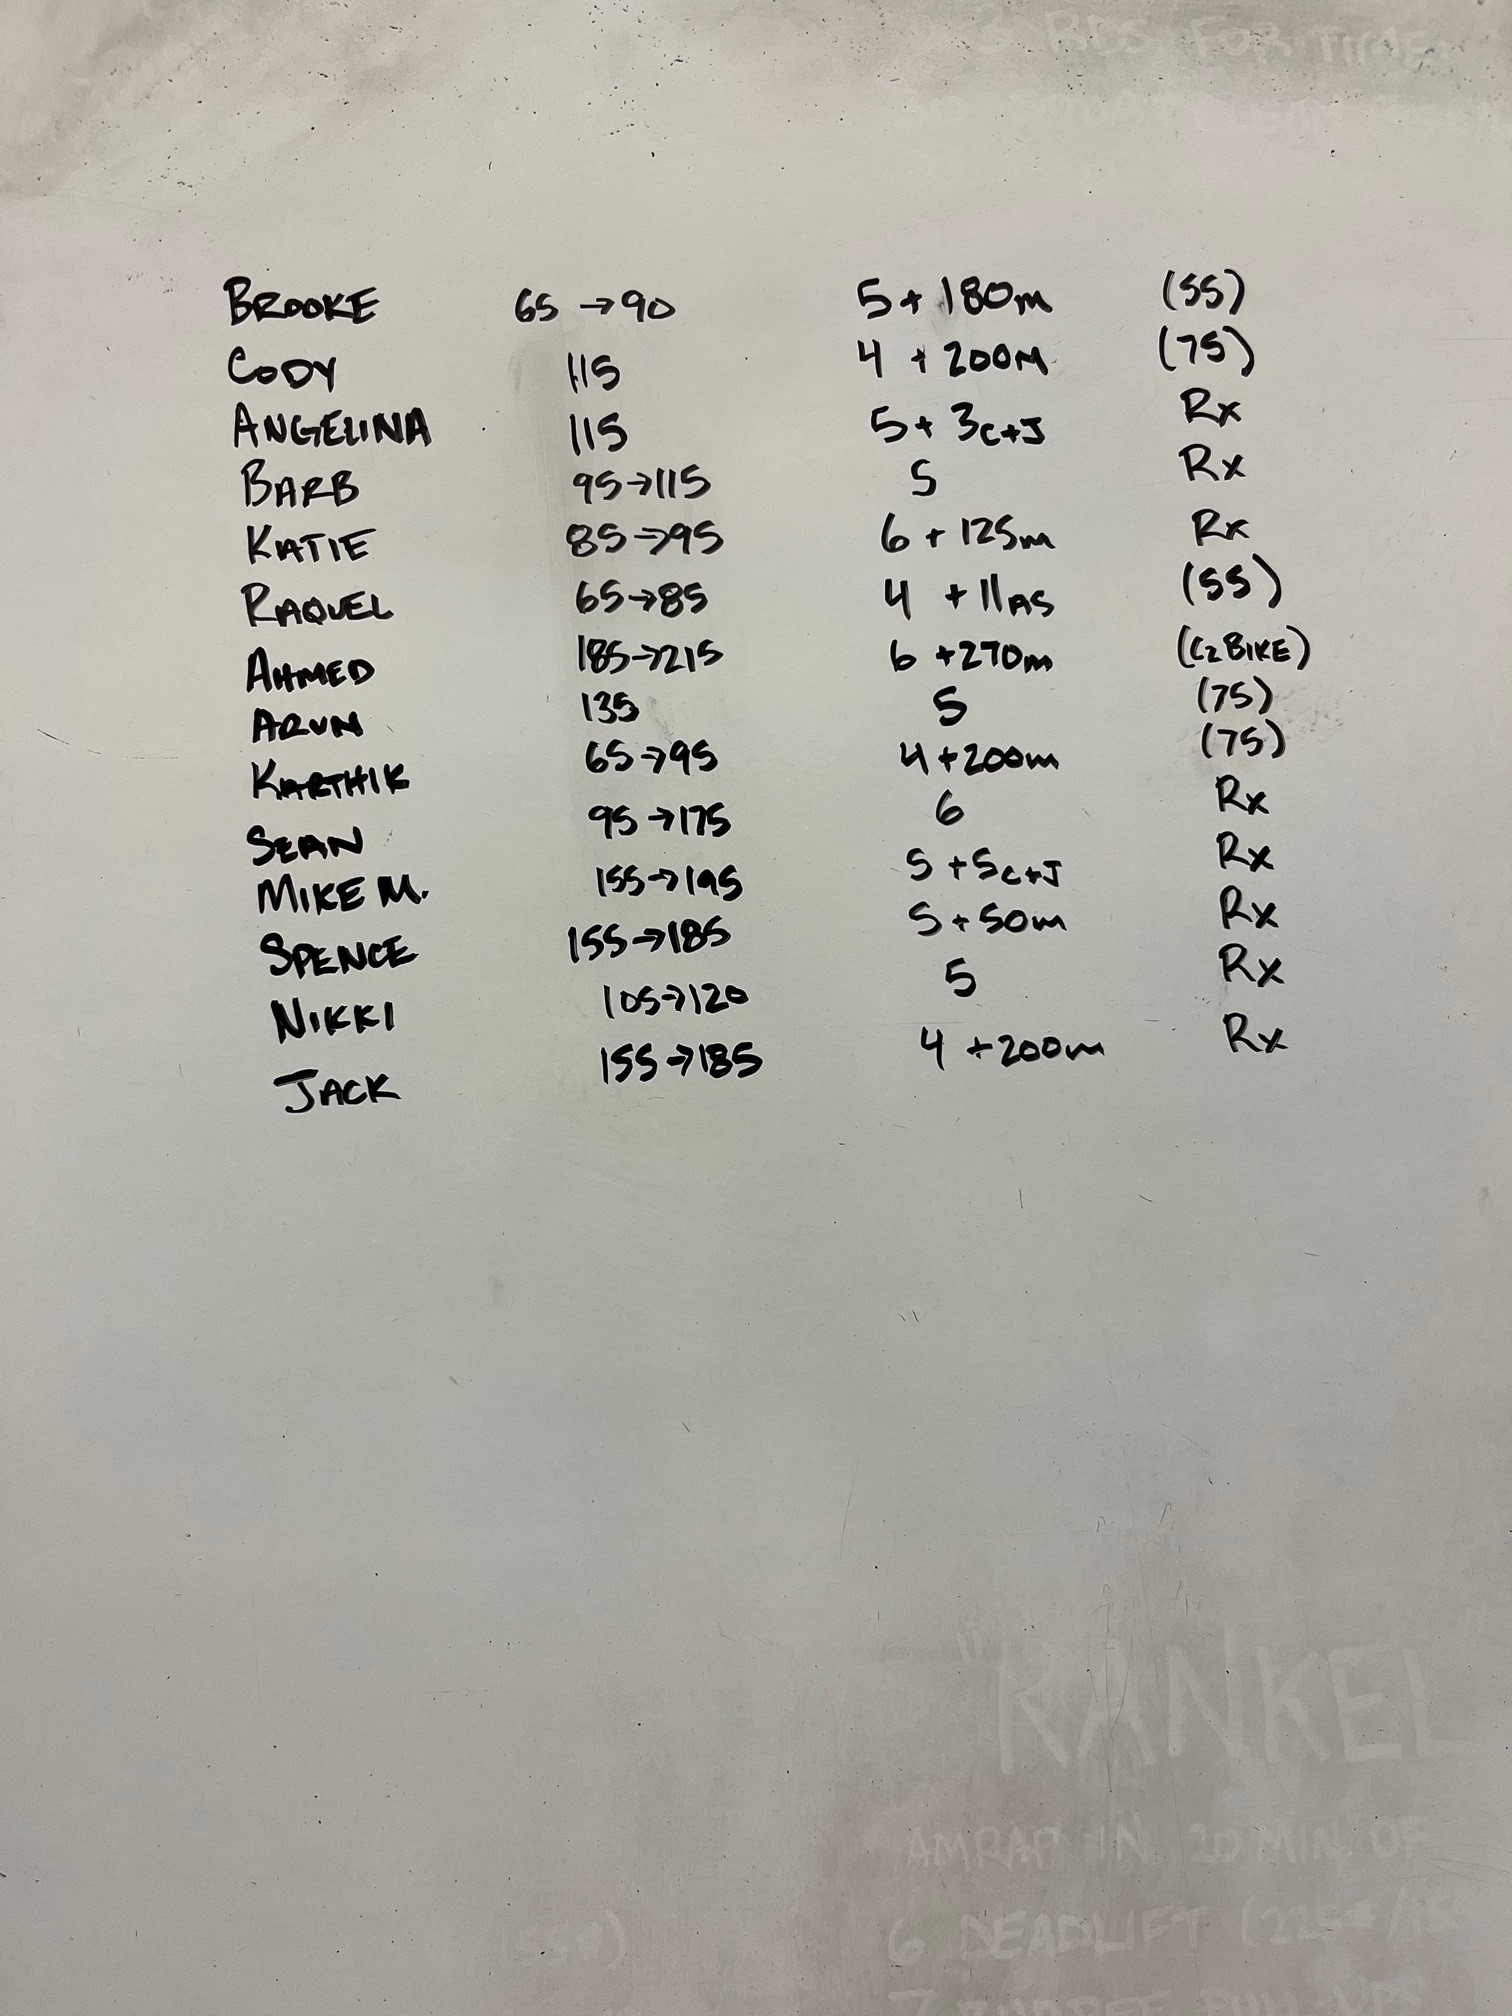 3 RDS FOR TIME
BROOKE 65 → 90 5 + 180m (55)
CODY 115 4 + 200M (75)
ANGELINA 115 5 + 3 C+J Rx
BARB 95→115 5 Rx
KATIE 85→95 6 + 125m Rx
RAQUEL 65→85 4 + 11 AS (55)
AHMED 185→215 6 +270m (C2 BIKE)
ARUN 135 5 (75)
KARTHIK 65→95 4+200m (75)
SEAN 95→175 6 Rx
MIKE M. 155→195 5 + 5 C+J Rx
SPENCE 155→185 5 + 50m Rx
NIKKI 105→120 5 Rx
JACK 155→185 4 +200m Rx
"RANKEL
AMRAP IN 20 MIN OF
6 DEADLIFT (225#/
7 BURPEE PULL-UPS